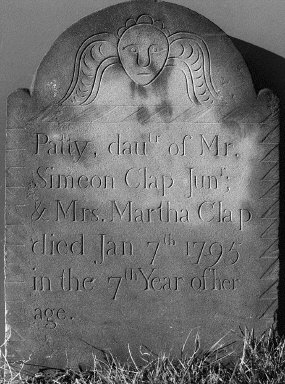 Patty, dau.tr of Mr.
Simeon Clap Junr;
& Mrs. Martha Clap
died Jan 7th 1795
in the 7th Year of her
age.